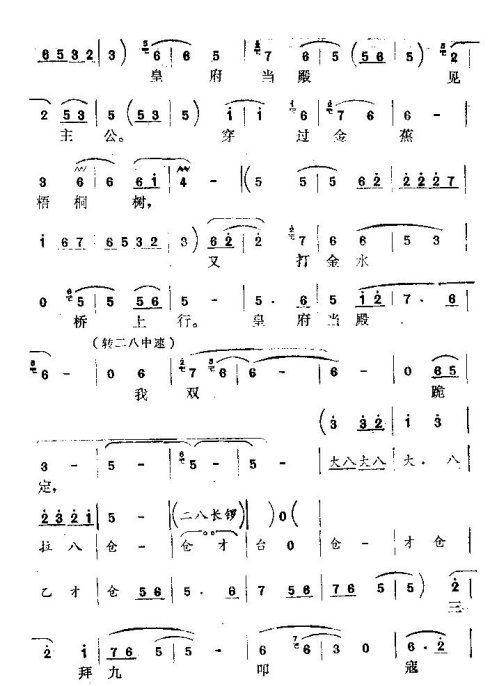 6532 | 3) 6 | 6 6 | 7 6 | 5 (6 | 53 5) | 2
皇 府 当 殿 见
2 53 | 5 (53 | 5) i | i 6 | 7 6 | 6
主 公。 穿 过 金 蕉
3 6 | 6 6i | 4 - | (5 5 | 5 62 | 2227
梧 桐 树,
i 67 | 6532 | 3) 62 | 2 7 | 6 6 | 5 3
又 打 金 水
0 5 | 5 56 | 5 - | 5· 6 | 5 i2 | 7· 6
桥 上 行。 皇 府 当 殿
(转二八中速)
6 - | 0 6 | 7 6 | 6 - | 6 - | 0 65
我 双 跪
(3 32 | i 3
3 - | 5 - | 5 - | 5 - | 大八大八 | 大· 八
定,
2321 | 5 - | (二八长锣) | 0 (
拉 八 | 仓 - | 仓 才 | 台 0 | 仓 - | 才 仓
乙 才 | 仓 56 | 5· 6 | 7 56 | 76 5 | 5) 2
三
2 i | 76 5 | 5 6 | 6 3 0 | 6·2
拜 九 叩 寇